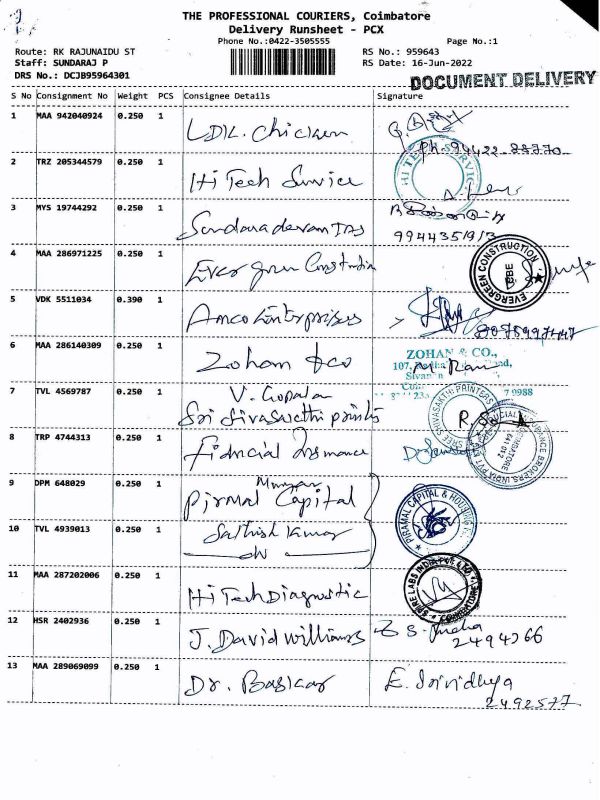 THE PROFESSIONAL COURIERS, Coimbatore
Delivery Runsheet - PCX
Phone No.:0422-3505555 Page No.:1
Route: RK RAJUNAIDU ST RS No.: 959643
Staff: SUNDARAJ P RS Date: 16-Jun-2022
DRS No.: DCJB95964301
DOCUMENT DELIVERY
S No Consignment No Weight PCS Consignee Details Signature
1 MAA 942040924 0.250 1 LDL. Chicken
Ph. 94422
2 TRZ 205344579 0.250 1 Hi Tech Service
HI TECH SERVICE
3 MYS 19744292 0.250 1 Sundaradevan IAS
4 MAA 286971225 0.250 1 Evergreen Construction
EVERGREEN CONSTRUCTION
5 VDK 5511034 0.390 1 Amco Enterprises
6 MAA 286140309 0.250 1 Zohan & co
ZOHAN & CO.,
107,
7 TVL 4569787 0.250 1 V. Gopalan
Sri Sivasakthi Prints
8 TRP 4744313 0.250 1 Financial Insurance
9 DPM 648029 0.250 1 Murugan
Pirmal Capital
PIRAMAL CAPITAL & HOUSING
10 TVL 4939013 0.250 1 Sathish Kumar
11 MAA 287202006 0.250 1 Hi Tech Diagnostic
LABS INDIA PVT LTD
12 HSR 2402936 0.250 1 J. David Williams
2494366
13 MAA 289069099 0.250 1 Dr. Baskar E. Srividhya
2492577